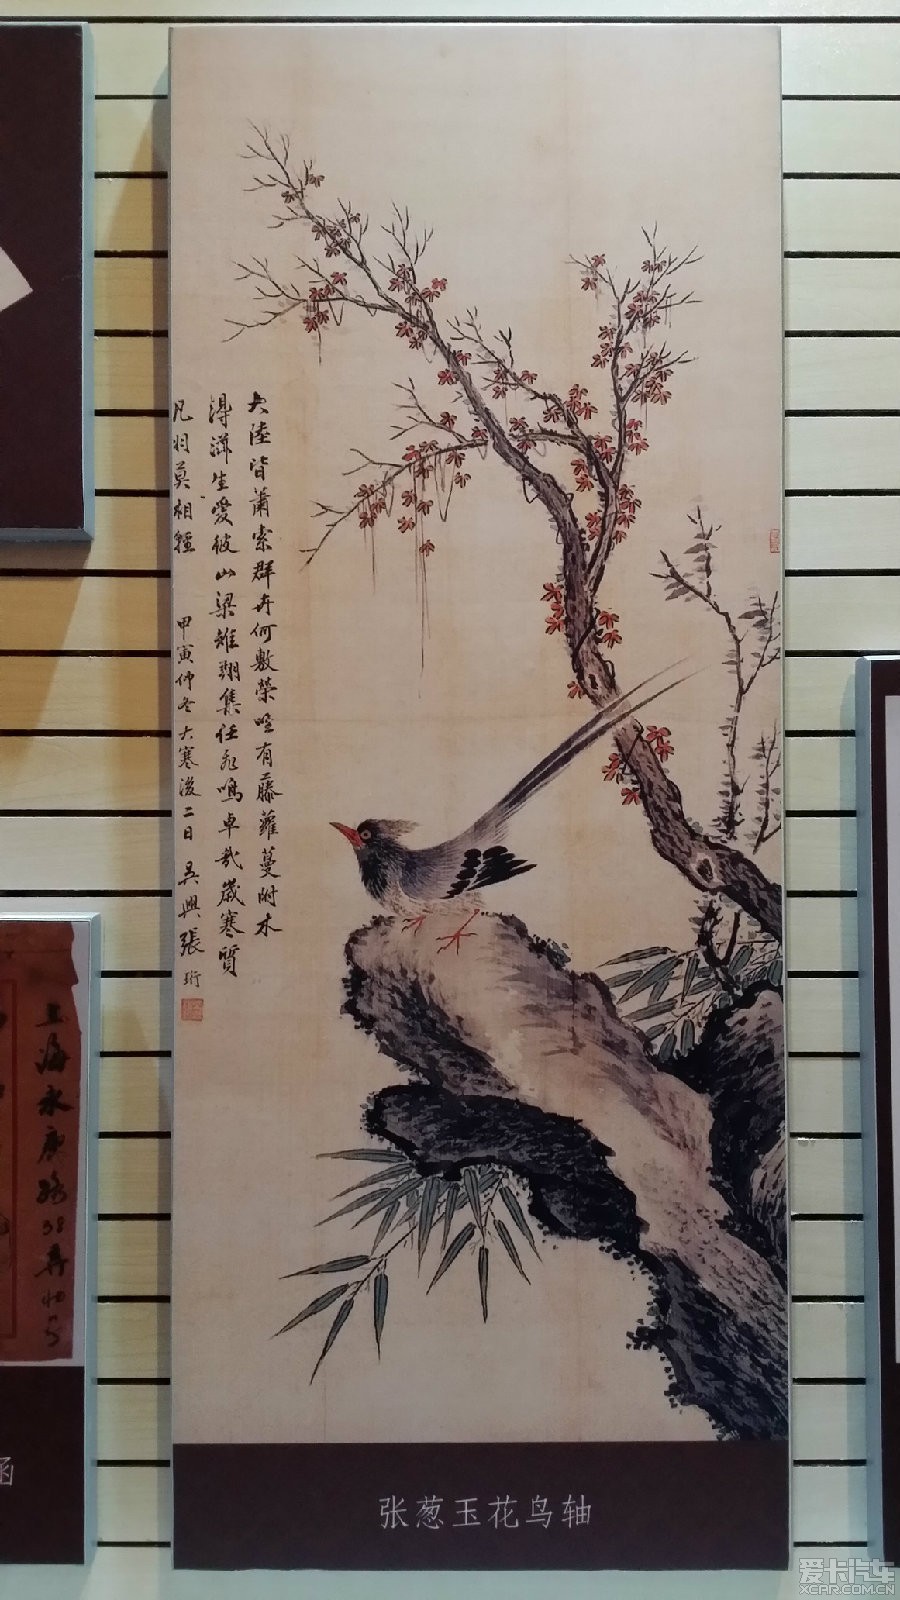 大陸皆蕭索群卉何敷榮唯有藤蘿蔓附木
得滋生愛彼山梁雉翔集任飛鳴卓哉歲寒質
凡羽莫相輕
甲寅仲冬大寒後二日 吳興張珩
上海永康路38弄
张葱玉花鸟轴
函
爱卡汽车
XCAR.COM.CN